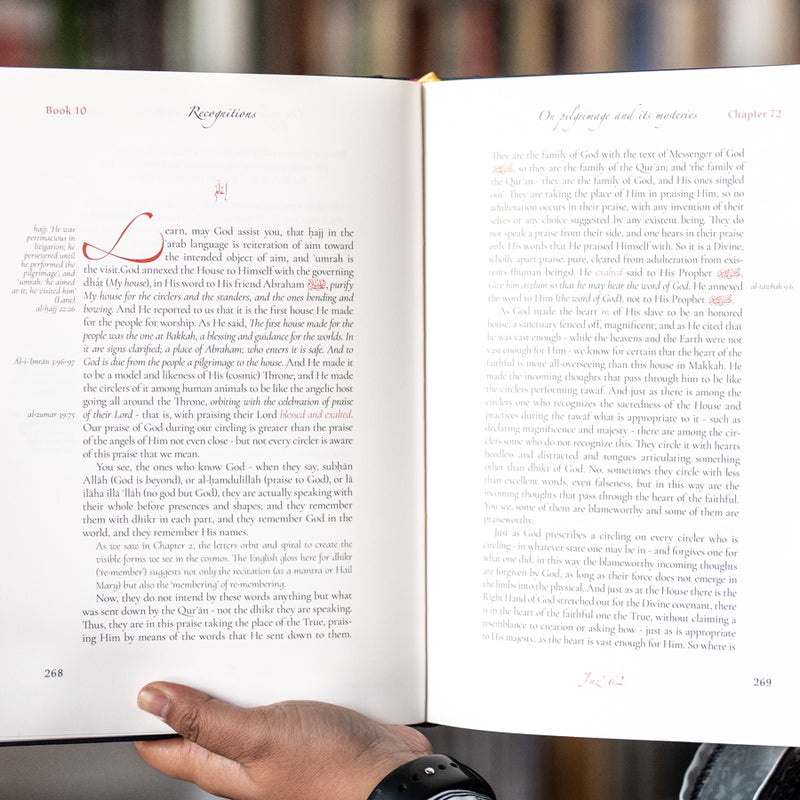 Book 10
Recognitions
إعلم
Learn, may God assist you, that ḥajj in the
ʿarab language is reiteration of aim toward
the intended object of aim, and ʿumrah is
the visit. God annexed the House to Himself with the governing
dhāt (My house), in His word to His friend Abraham, purify
My house for the circlers and the standers, and the ones bending and
bowing. And He reported to us that it is the first house He made
for the people for worship. As He said, The first house made for the
people was the one at Bakkah, a blessing and guidance for the worlds. In
it are signs clarified; a place of Abraham; who enters it is safe. And to
God is due from the people a pilgrimage to the house. And He made it
to be a model and likeness of His (cosmic) Throne; and He made
the circlers of it among human animals to be like the angelic host
going all around the Throne, orbiting with the celebration of praise
of their Lord - that is, with praising their Lord blessed and exalted.
Our praise of God during our circling is greater than the praise
of the angels of Him not even close - but not every circler is aware
of this praise that we mean.
You see, the ones who know God - when they say, subḥān
Allāh (God is beyond), or al-ḥamdulillāh (praise to God), or lā
ilāha illā ʾllāh (no god but God), they are actually speaking with
their whole before presences and shapes; and they remember
them with dhikr in each part, and they remember God in the
world, and they remember His names.
As we saw in Chapter 2, the letters orbit and spiral to create the
visible forms we see in the cosmos. The English gloss here for dhikr
('re-member') suggests not only the recitation (as a mantra or Hail
Mary) but also the 'membering' of re-membering.
Now, they do not intend by these words anything but what
was sent down by the Qurʾān - not the dhikr they are speaking.
Thus, they are in this praise taking the place of the True, prais-
ing Him by means of the words that He sent down to them.
ḥajj: 'He was
pertinacious in
litigation; he
persevered until
he performed the
pilgrimage'; and
ʿumrah: 'he aimed
at it; he visited him'
(Lane).
al-ḥajj 22:26
Āl-i-ʿImrān 3:96-97
al-zumar 39:75
268
On pilgrimage and its mysteries
Chapter 72
They are the family of God with the text of Messenger of God
, so they are the family of the Qurʾān; and 'the family of
the Qurʾan - they are the family of God, and His ones singled
out'. They are taking the place of Him in praising Him, so no
adulteration occurs in their praise, with any invention of their
selves or any choice suggested by any existent being. They do
not speak a praise from their side, and one hears in their praise
only His words that He praised Himself with. So it is a Divine,
wholly apart praise; pure, cleared from adulteration from exis-
tents (human beings). He exalted said to His Prophet,
Give him asylum so that he may hear the word of God. He annexed
the word to Him (the word of God), not to His Prophet
As God made the heart of His slave to be an honored
house, a sanctuary fenced off, magnificent; and as He cited that
he was vast enough - while the heavens and the Earth were not
vast enough for Him - we know for certain that the heart of the
faithful is more all-overseeing than this house in Makkah. He
made the incoming thoughts that pass through him to be like
the circlers performing ṭawaf. And just as there is among the
circlers one who recognizes the sacredness of the House and
practices during the ṭawaf what is appropriate to it - such as
declaring magnificence and majesty - there are among the cir-
clers some who do not recognize this. They circle it with hearts
heedless and distracted and tongues articulating something
other than dhikr of God. No, sometimes they circle with less
than excellent words, even falseness, but in this way are the
incoming thoughts that pass through the heart of the faithful.
You see, some of them are blameworthy and some of them are
praiseworthy.
Just as God prescribes a circling on every circler who is
circling - in whatever state one may be in - and forgives one for
what one did, in this way the blameworthy incoming thoughts
are forgiven by God, as long as their force does not emerge in
the limbs into the physical. And just as at the House there is the
Right Hand of God stretched out for the Divine covenant, there
is in the heart of the faithful one the True, without claiming a
resemblance to creation or asking how - just as is appropriate
to His majesty, as the heart is vast enough for Him. So where is
al-tawbah 9:6
Juz' 62
269